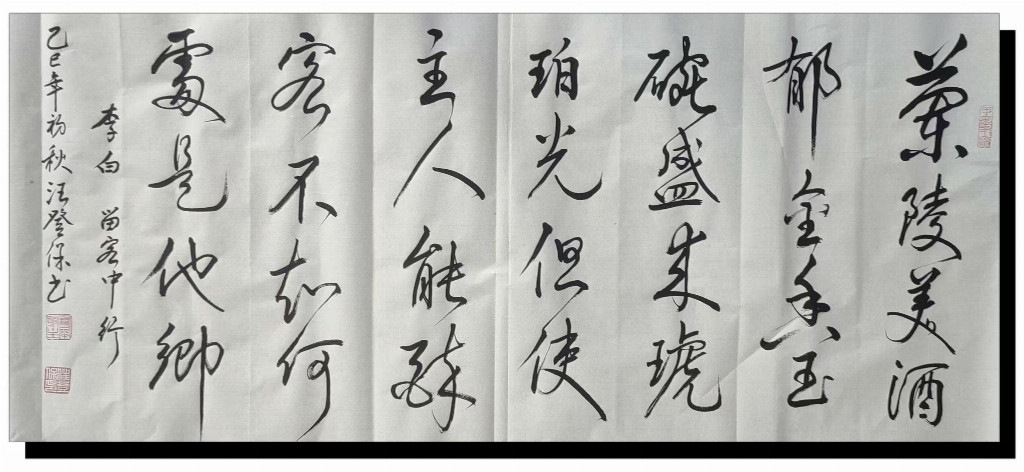 蘭陵美酒
郁金香玉
碗盛来琥
珀光但使
主人能醉
客不知何
處是他鄉
李白 留客中行
乙巳年初秋汪登保书